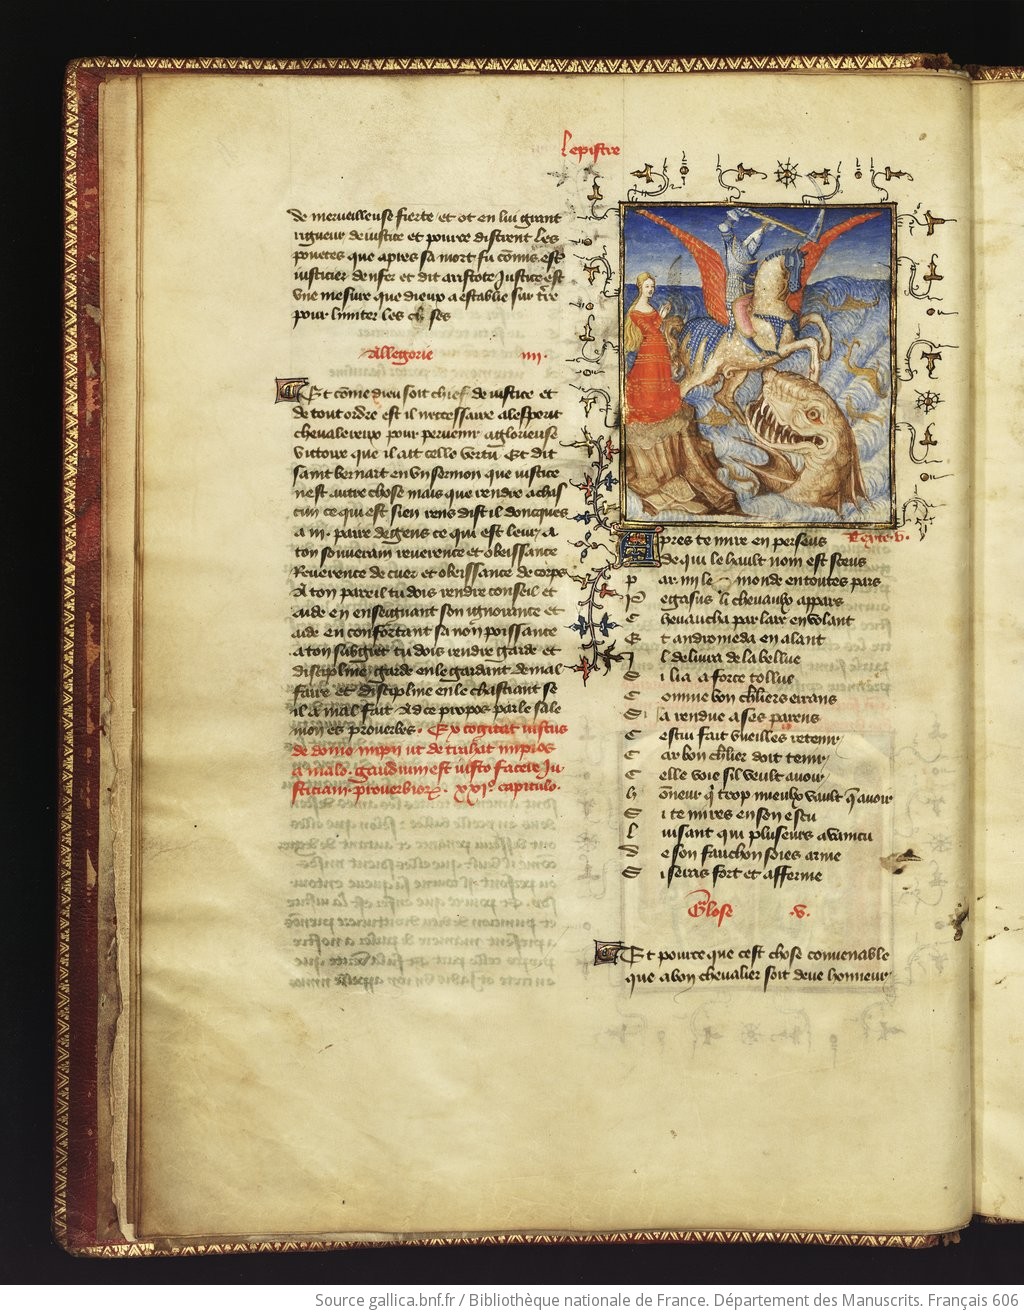 Lepistre
de merveilleuse fierte et ot en lui grant
rigueur de iustice et pource distrent les
pouetes que apres sa mort fu commis est
iusticier denfer et dit aristote Justice est
vne mesure que dieux a establie sur tre
pour limiter les choses
Allegorie iiii.
Et come dieu soit chief de iustice et
de tout ordre est il necessaire a lesperit
cheualereux pour peruenir a glorieuse
victoire que il ait celle vertu Et dit
saint bernart en vn sermon que iustice
nest autre chose mais que rendre a chas
cun ce qui est sien rens dist il doncques
a iii. paire de gens ce qui est leur a
ton souuerain reuerence et obeissance
Reuerence de cuer et obeissance de corps
A ton pareil tu dois rendre conseil et
aide en enseignant son ignorance et
aide en confortant sa non poissance
a ton subgiet tu dois rendre garde et
discipline garde en le gardant de mal
faire et discipline en le chastiant se
il a mal fait Ad ce propos parle sale
mon es prouerbes. Excogitat iustus
de domo impii ut detrahat impios
a malo. gaudium est iusto facere Ju
sticiam. prouerbiorum. xxi.o capitulo.
Apres te mire en perseus Texte .v.
de qui le hault nom est sceus
par mi le monde en toutes pars
Pegasus li cheuaulx appars
Cheuaucha par lair en volant
Et andromeda en alant
Il deliura de la bellue
Si lia a force tollue
Comme bon chliers errans
Si la rendue a ses parens
Cestui fait vueilles retenir
Car bon chlier doit tenir
Celle voie sil veult auoir
honneur qui trop mieulx vault que auoir
Si te mires en son escu
Luisant qui pluseurs a vaincu
De son fauchon soies arme
Si seras fort et afferme
Glose .v.
Et pource que cest chose conuenable
que a bon cheualier soit deue honneur
Source gallica.bnf.fr / Bibliothèque nationale de France. Département des Manuscrits. Français 606